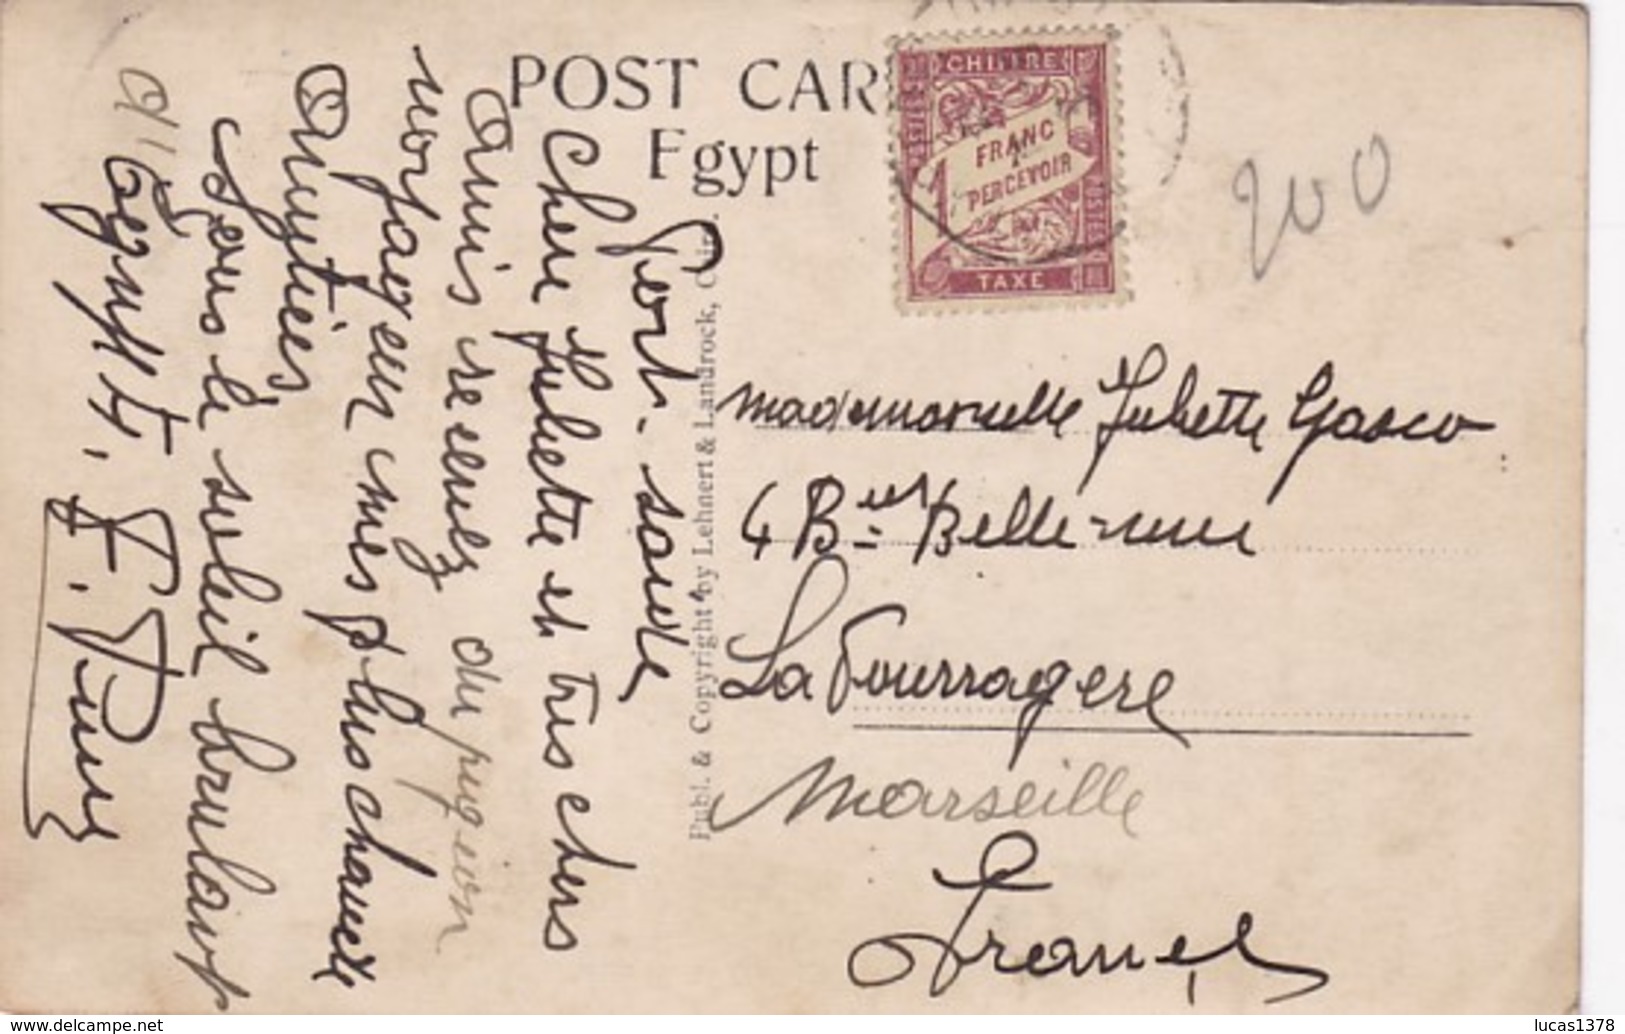 POST CAR
Egypt
CHIFFRE
POSTES
FRANC
1
PERCEVOIR
POSTES
TAXE
200
Publ. & Copyright by Lehnert & Landrock,
Port-Saïde
Chere Juliette et tres chers
Amis recevez du pigeon
voyageur mes plus chaude
Amitiées
sous le soleil brulant
d'Egypte. F.
mademoiselle Juliette Gasco
4 Bd Bellevue
La Fourragere
Marseille
France
www.delcampe.net
lucas1378